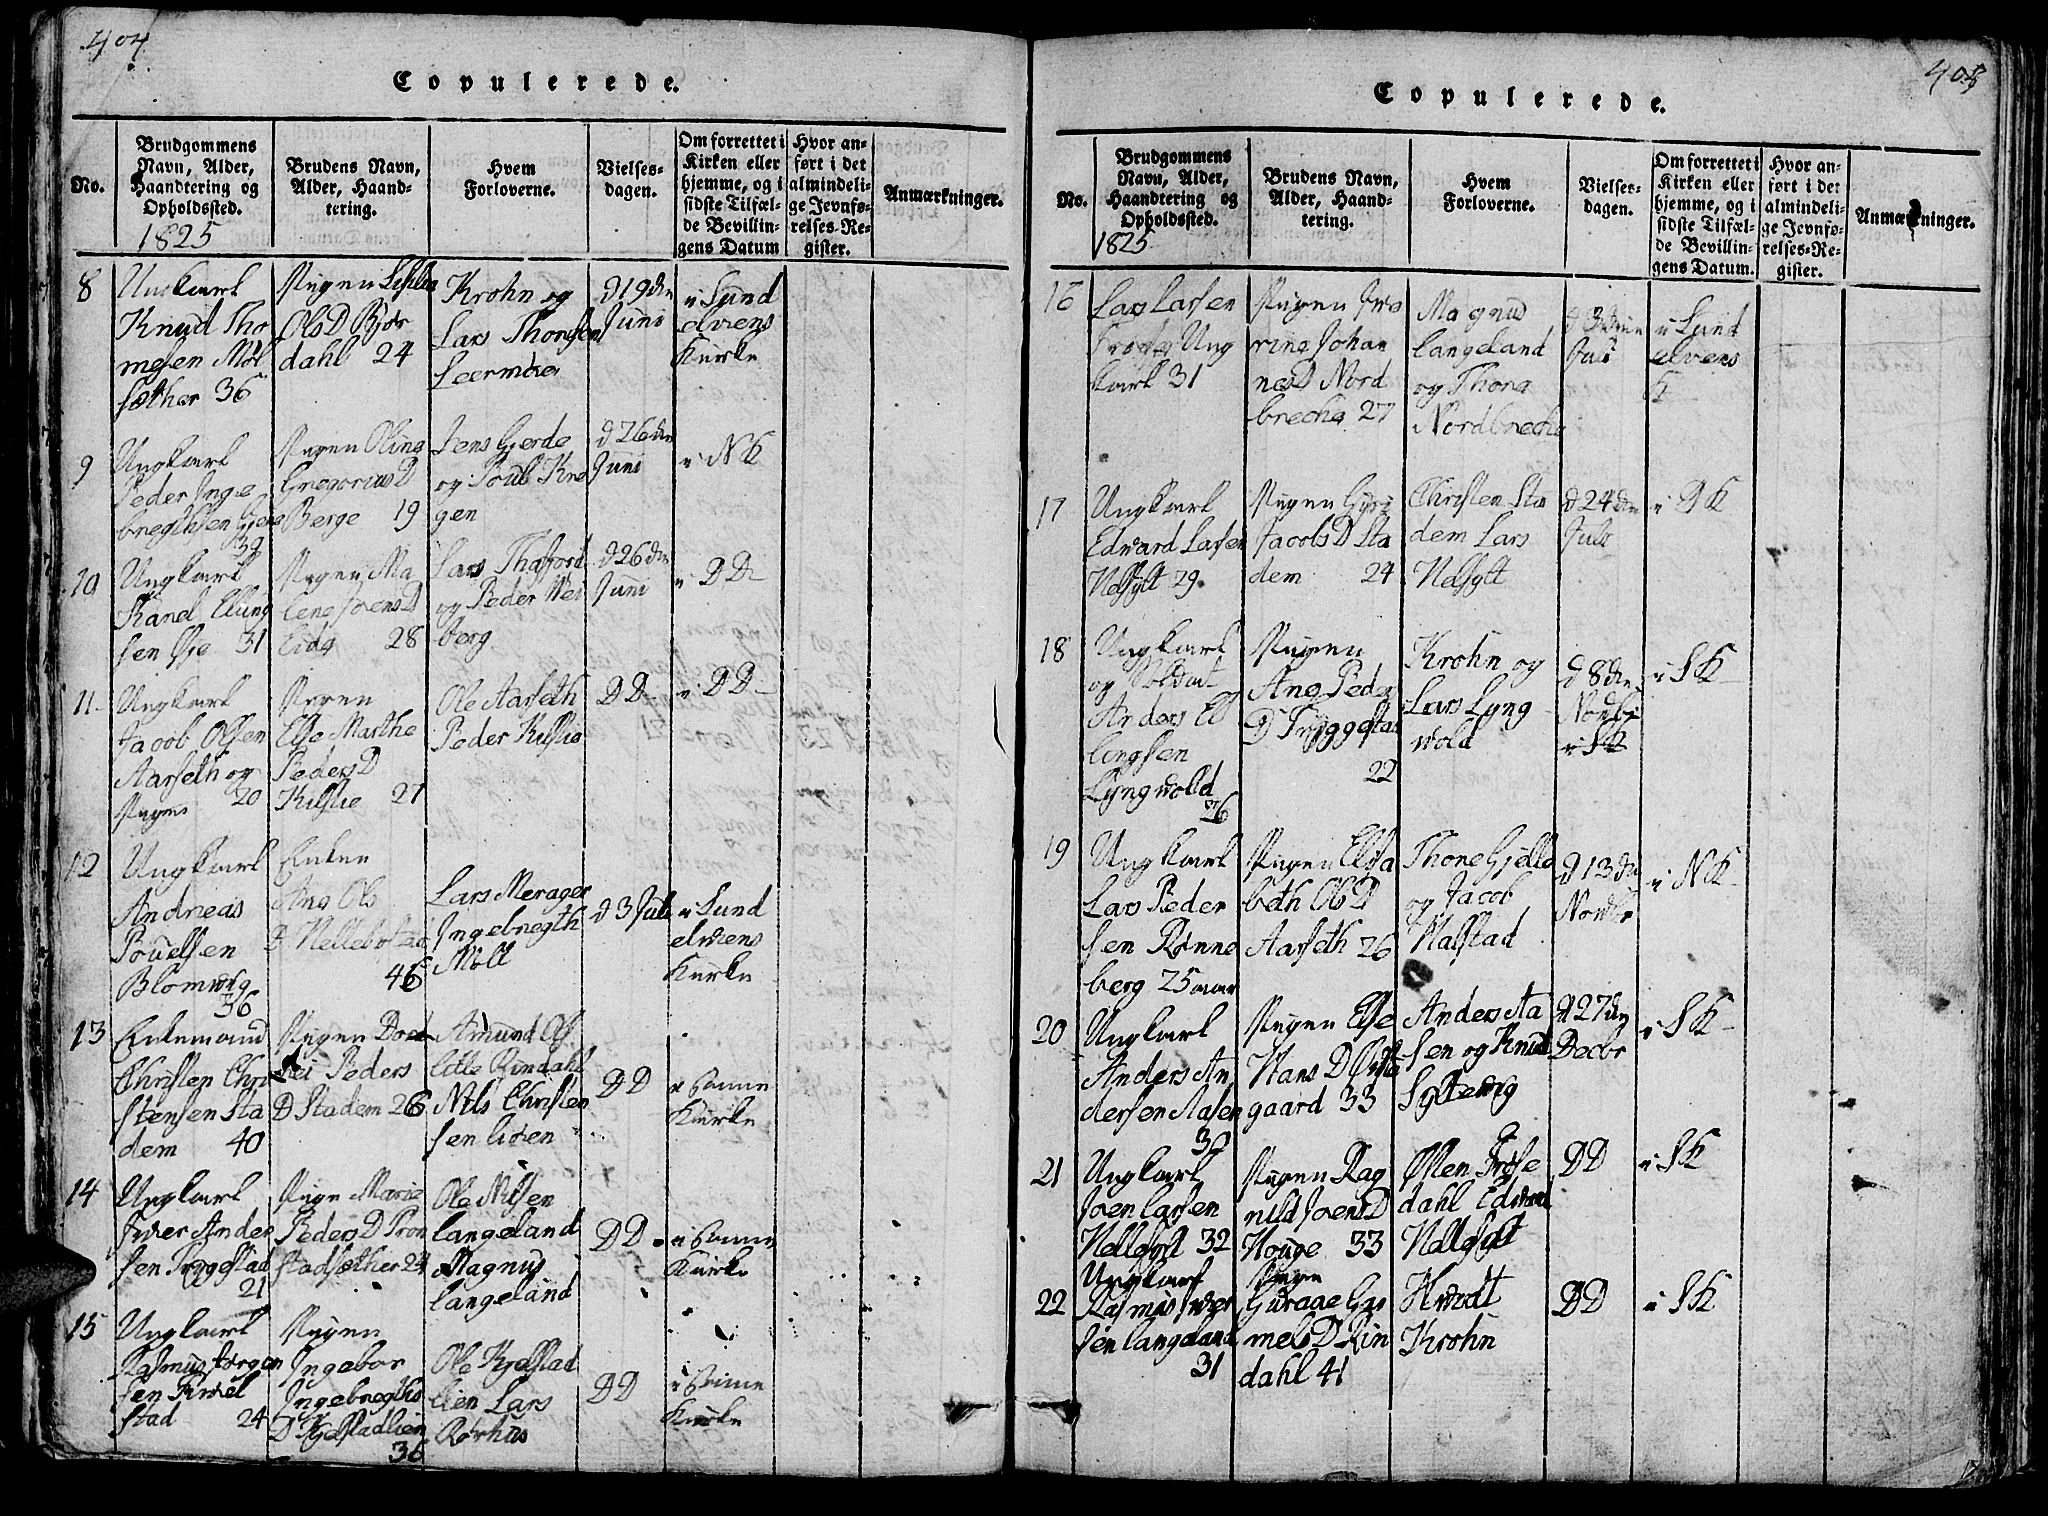 404
Copulerede.
No.
Brudgommens
Navn, Alder,
Haandtering og
Opholdssted.
1825
Brudens Navn,
Alder, Haand-
tering.
Hvem
Forloverne.
Vielses-
dagen.
Om forrettet i
Kirken eller
hjemme, og i
sidste Tilfæl-
de Bevillin-
gens Datum
Hvor an-
ført i det
almindeli-
ge Jevnfø-
relses-Re-
gister.
Anmærkninger.
8
Ungkarl
Knud Tho
mesen
sæther 36
Pigen
OlsD Bjør
dahl 24
Krohn og
Lars Thoresen
Leermoe
d 19 den
Juni
i Sund
elvens
Kirke
9
Ungkarl
Peder Inge
bregthsen
39
Pigen Oline
GregoriusD
Berge 19
Jens Gjerde
og Poul Kre
gen
d 26 den
Juni
i NK
10
Ungkarl
Karel Elling
sen Øie 31
Pigen Ma
lene JoensD
Eide 28
Lars
og Peder Wei
berg
d 26 den
Juni
i DD
11
Ungkarl
Jacob Olsen
Aarseth og
20
Pigen
Else Marthe
PedersD
Kilslie 21
Ole Aarseth
Peder Kilslie
DD
i DD
12
Ungkarl
Andreas
Pouelsen
Blomvig
36
Enken
Ane Ols
D
46
Lars Merager
Ingebregth
Molt
d 3 Juli
i Sund
elvens
Kirke
13
Enkemand
Christen Chri
stensen Sta
dem 40
Pigen Dort
hei Peders
D Stadem 26
Amund Ol
Litle Rindahl
Nils Christen
sen Lieen
DD
i samme
Kirke
14
Ungkarl
Iver Ander
sen Tryggestad
21
Pige Marie
PedersD Tron
stadsæther 24
Ole Nilsen
Langeland
Magnus
Langeland
DD
i samme
Kirke
15
Ungkarl
Rasmus Jørgen
sen
stad 24
Pigen
Ingebor
Ingebregths
D Kjelstadlien
36
Ole Kjelstad
lien Lars
Rørhus
DD
i samme
Kirke
405
Copulerede.
No.
Brudgommens
Navn, Alder,
Haandtering og
Opholdssted.
1825
Brudens Navn,
Alder, Haand-
tering.
Hvem
Forloverne.
Vielses-
dagen.
Om forrettet i
Kirken eller
hjemme, og i
sidste Tilfæl-
de Bevillin-
gens Datum.
Hvor an-
ført i det
almindeli-
ge Jevnfø-
relses-Re-
gister.
Anmærkninger.
16
Lars Larsen
Ung
karl 31
Pigen
Johan
nesD Nord
breche 27
Magnus
Langeland
og Thore
Nordbreche
d 3 den
Juli
i Sund
elvens
K
17
Ungkarl
Edvard Larsen
Helsylt 29
Pigen Gyri
JacobsD Sta
dem 24
Christen Sta
dem Lars
Helsylt
d 24 den
Juli
i DK
18
Ungkarl
og Soldat
Anders El
lingsen
Lyngvold
26
Pigen
Ane Peder
D Tryggestad
22
Krohn og
Lars Lyng
vold
d 8 den
Novbr
i SK
i SK
19
Ungkarl
Lars Peder
sen Rønne
berg 25 aar
Pigen Elisa
beth OlsD
Aarseth 26
Thore Gjelle
og Jacob
Halstad
d 13 den
Novbr
i NK
20
Ungkarl
Anders An
dersen Aasen
30
Pigen Else
HansD
gaard 33
Anders Aa
sen og Knud
Syltevig
d 27 den
Decbr
i SK
21
Ungkarl
Joen Larsen
Hellesylt 32
Pigen Rag
nild JoensD
Houge 33
Østen Frøse
dahl Edvard
Hellesylt
DD
i SK
22
Ungkarl
Rasmus Iver
sen Langeland
31
Pigen
Guraae Gar
melsD Rin
dahl 41
Hvedt
Krohn
DD
i SK